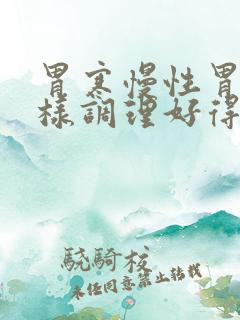 胃寒慢性胃
样調理好得
驍騎校
未经同意禁止转载